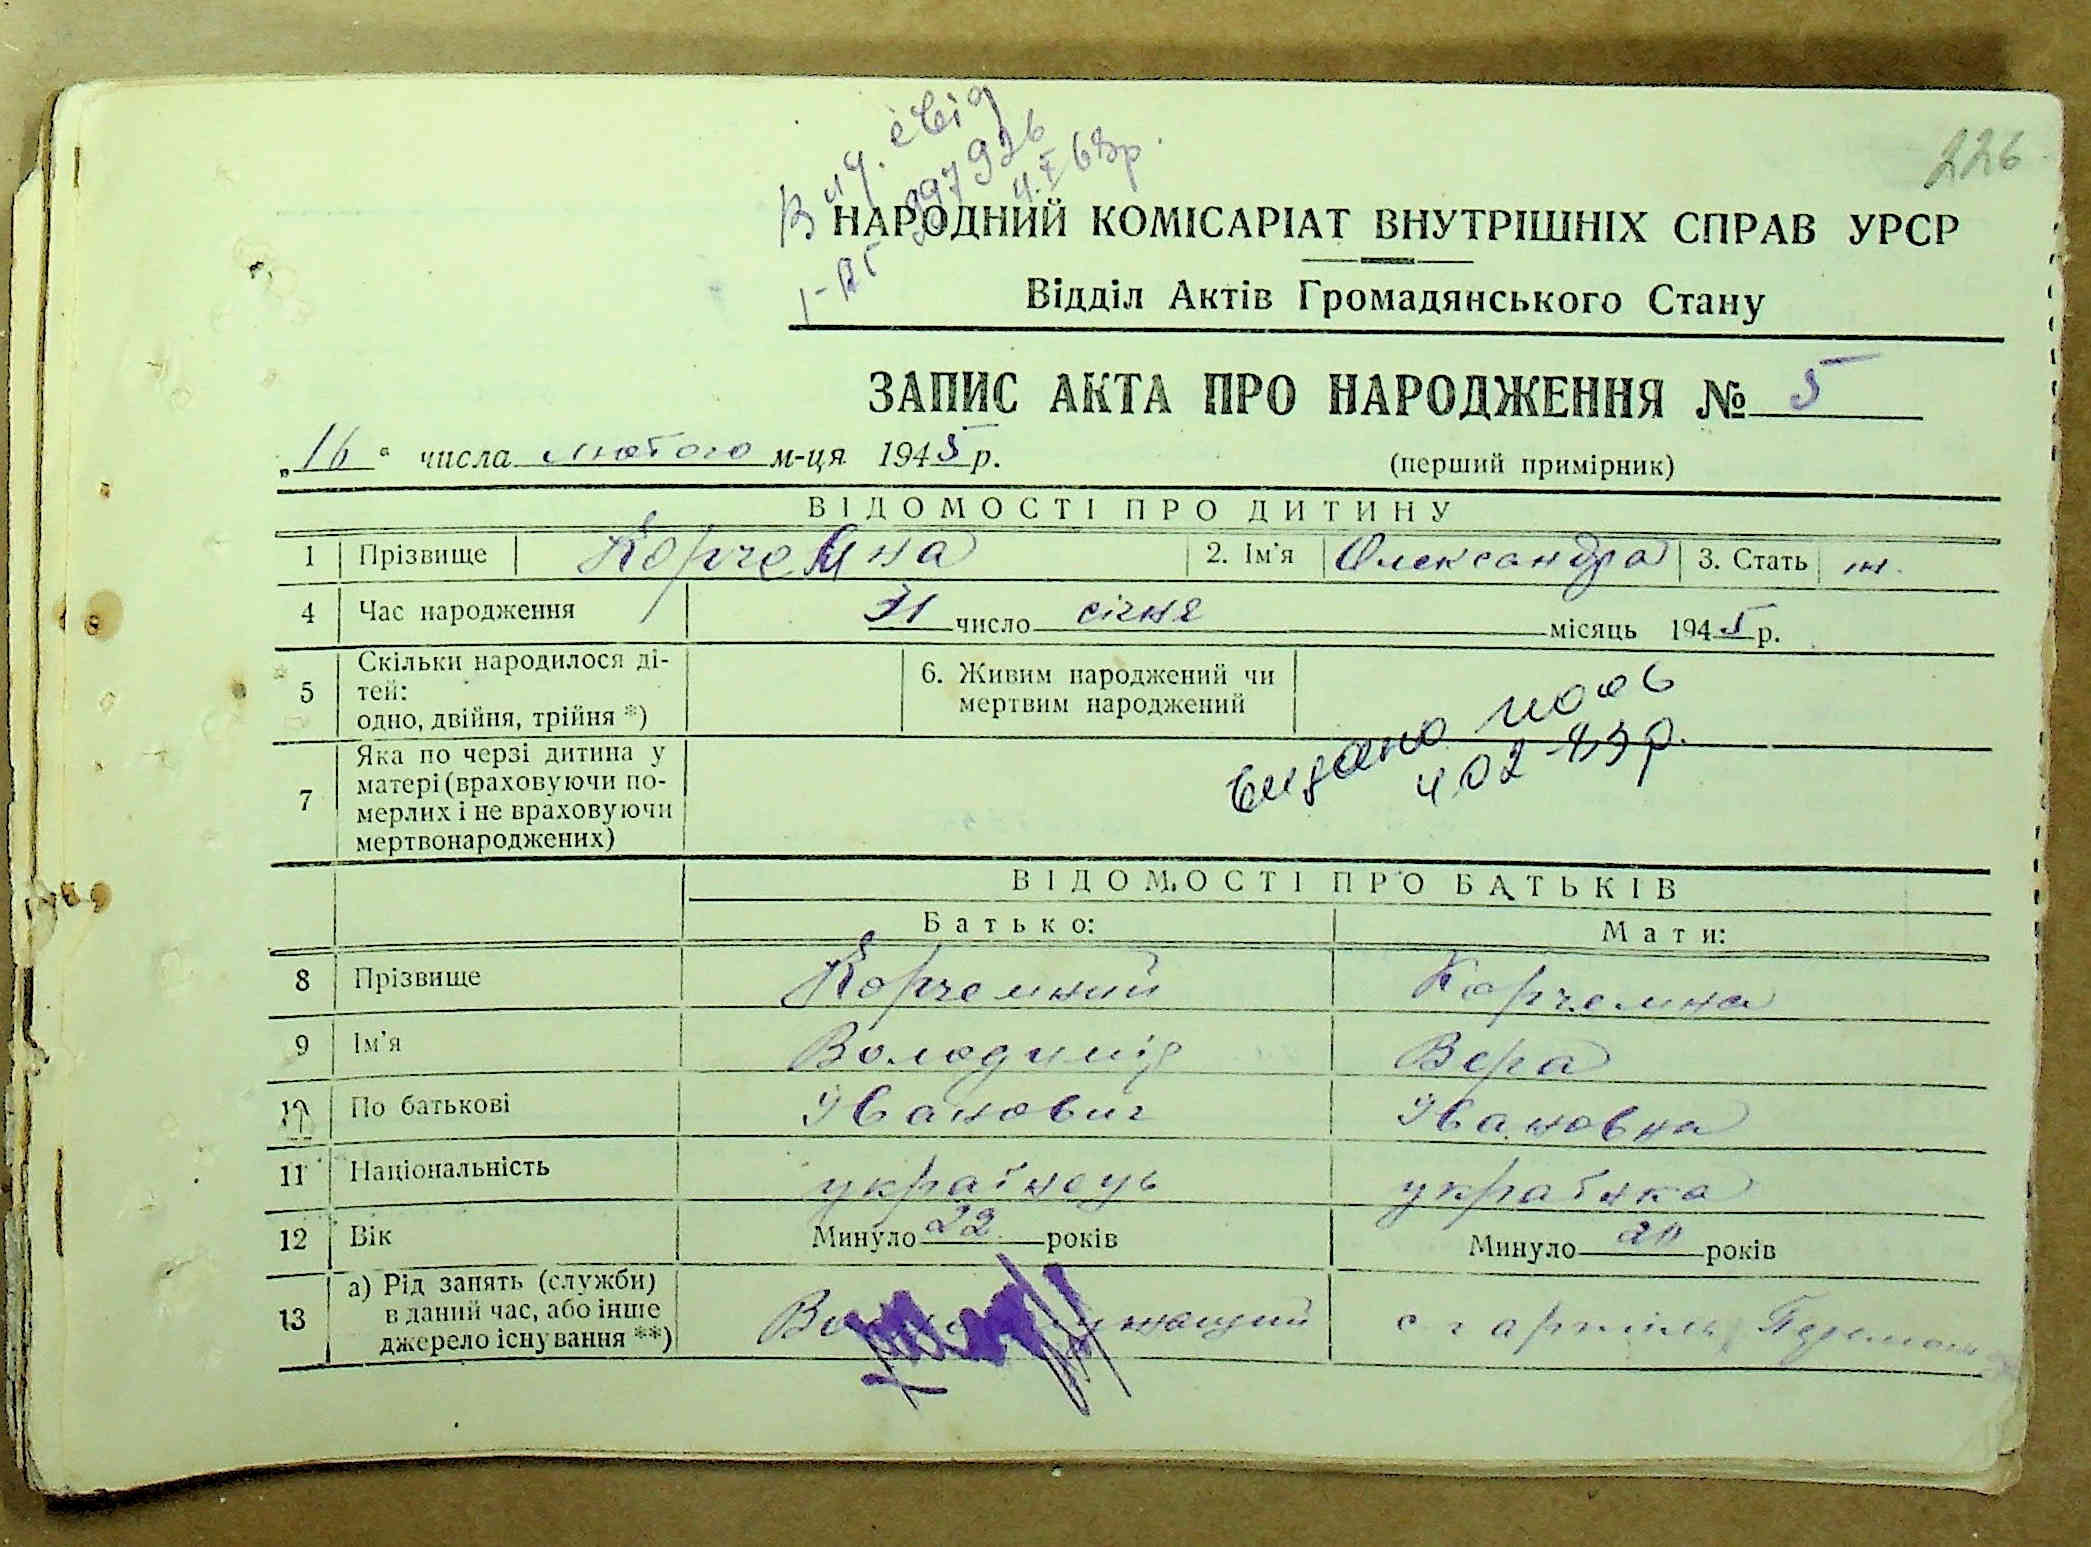 226
Вид. свід
I-АГ 997926
4.X 68р.
НАРОДНИЙ КОМІСАРІАТ ВНУТРІШНІХ СПРАВ УРСР
Відділ Актів Громадянського Стану
ЗАПИС АКТА ПРО НАРОДЖЕННЯ № 5
„16“ числа лютого м-ця 1945 р.
(перший примірник)
ВІДОМОСТІ ПРО ДИТИНУ
1 Прізвище Корчемна 2. Ім'я Олександра 3. Стать ж.
4 Час народження 31 число січня місяць 1945 р.
5 Скільки народилося ді-
тей:
одно, двійня, трійня *)
6. Живим народжений чи
мертвим народжений
видано
7 Яка по черзі дитина у
матері (враховуючи по-
мерлих і не враховуючи
мертвонароджених)
ВІДОМОСТІ ПРО БАТЬКІВ
Батько: Мати:
8 Прізвище Корчемний Корчемна
9 Ім'я Володимір Вера
10 По батькові Іванович Івановна
11 Національність українець українка
12 Вік Минуло 22 років Минуло років
13 а) Рід занять (служби)
в даний час, або інше
джерело існування **)
с г артіль